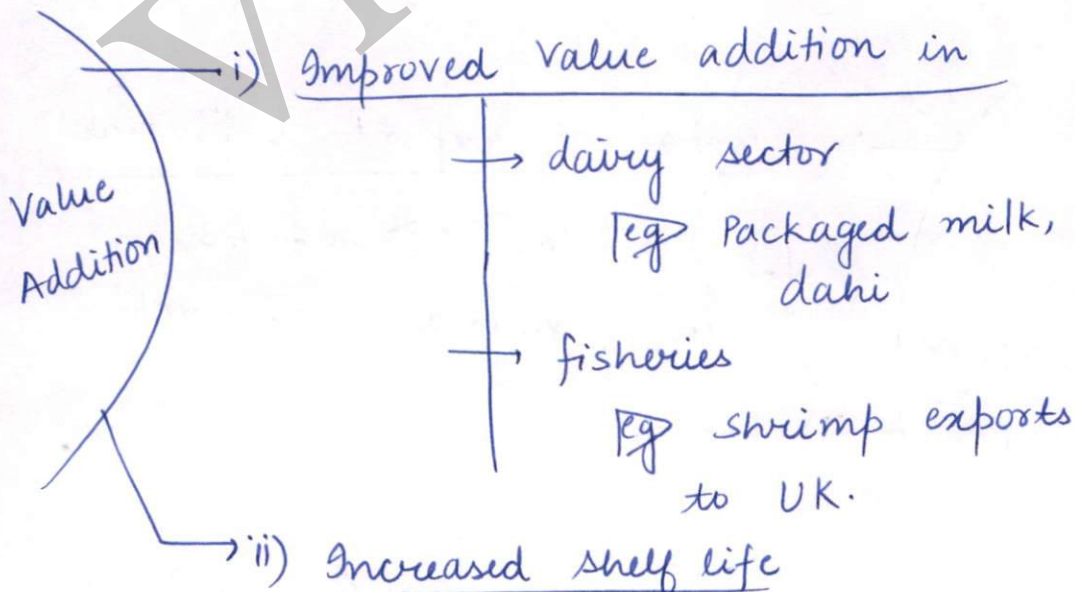 i) Improved value addition in
Value
Addition
dairy sector
eg Packaged milk,
dahi
fisheries
eg shrimp exports
to UK.
ii) Increased shelf life